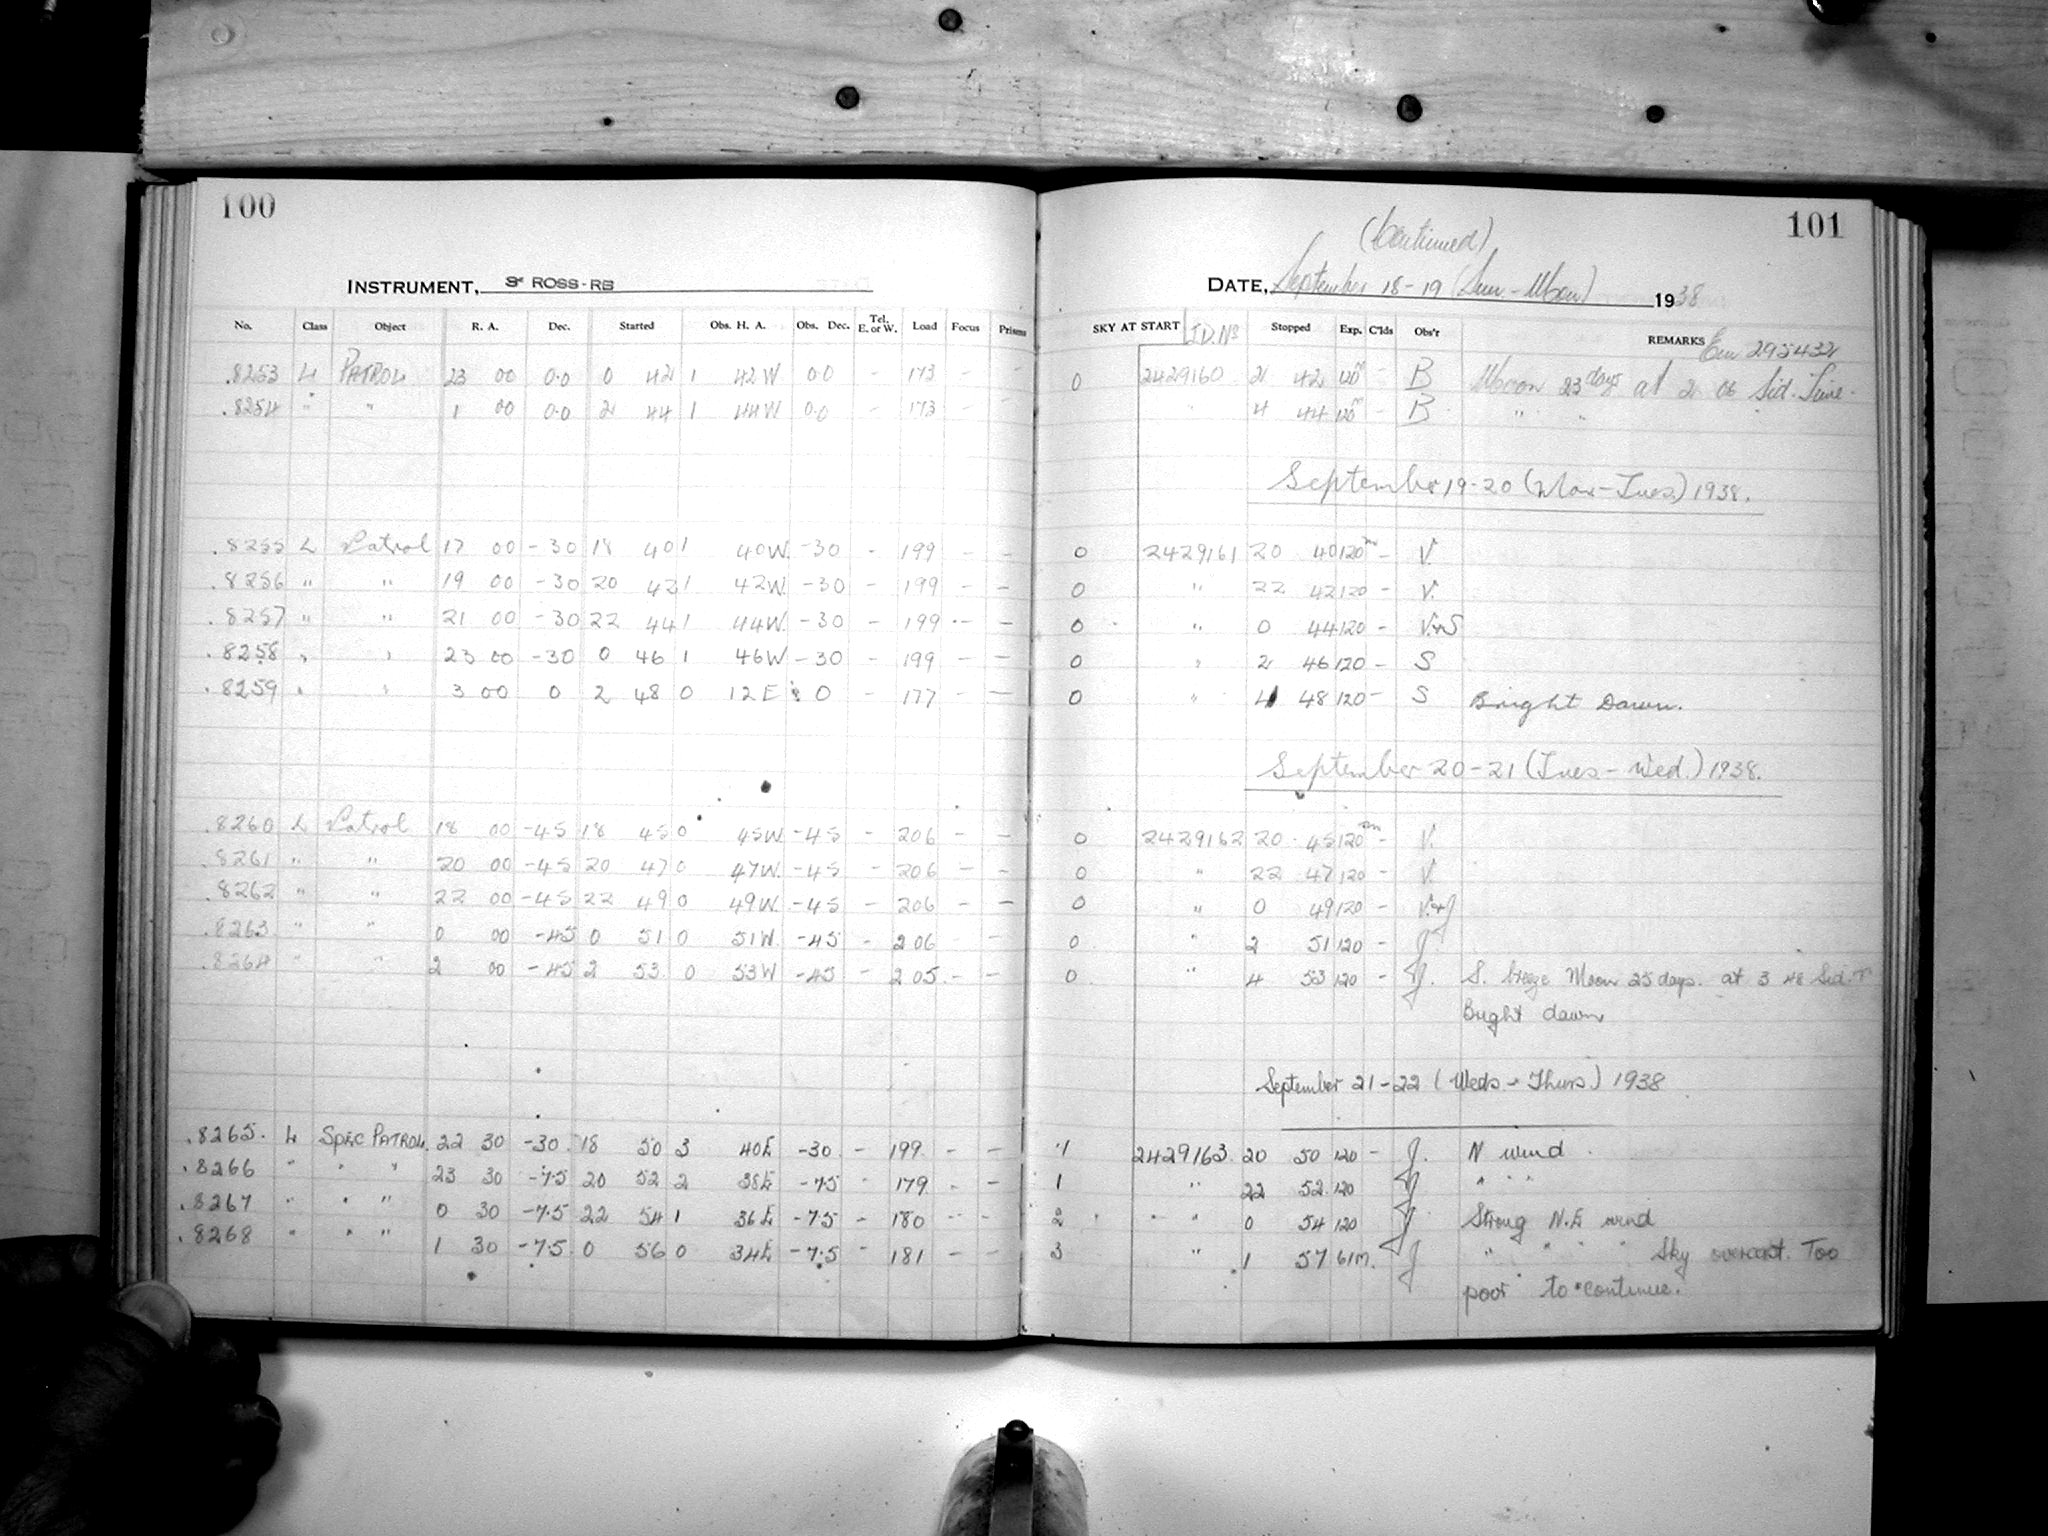 100
INSTRUMENT, 3" ROSS-RB
No. Class Object R. A. Dec. Started Obs. H. A. Obs. Dec. Tel. E. or W. Load Focus Prisms
.8253 L PATROL 23 00 0.0 0 42 1 42W 0.0 - 173 - -
.8254 " " 1 00 0.0 2 44 1 44W 0.0 - 173 - -
.8255 L Patrol 17 00 -30 18 40 1 40W. -30 - 199 - -
.8256 " " 19 00 -30 20 42 1 42W. -30 - 199 - -
.8257 " " 21 00 -30 22 44 1 44W. -30 - 199 - -
.8258 " " 23 00 -30 0 46 1 46W -30 - 199 - -
.8259 " " 3 00 0 2 48 0 12E 0 - 177 - -
.8260 L Patrol 18 00 -45 18 45 0 45W. -45 - 206 - -
.8261 " " 20 00 -45 20 47 0 47W. -45 - 206 - -
.8262 " " 22 00 -45 22 49 0 49W. -45 - 206 - -
.8263 " " 0 00 -45 0 51 0 51W. -45 - 206 - -
.8264 " " 2 00 -45 2 53 0 53W -45 - 205 - -
.8265. L Spec PATROL 22 30 -30 18 50 3 40E -30 - 199 - -
.8266 " " " 23 30 -7.5 20 52 2 38E -7.5 - 179 - -
.8267 " " " 0 30 -7.5 22 54 1 36E -7.5 - 180 - -
.8268 " " " 1 30 -7.5 0 56 0 34E -7.5 - 181 - -
101
(Continued)
DATE, September 18-19 (Sun-Mon) 1938
SKY AT START J.D. No Stopped Exp. C'lds Obs'r REMARKS
295432
0 2429160 2 42 120m - B Moon 23 days at 2 06 Sid. Time.
" 4 44 120m - B " "
September 19-20 (Mon-Tues) 1938.
0 2429161 20 40 120m - V.
0 " 22 42 120 - V.
0 " 0 44 120 - V.+S
0 " 2 46 120 - S
0 " 4 48 120 - S Bright Dawn.
September 20-21 (Tues-Wed.) 1938.
0 2429162 20 45 120m - V.
0 " 22 47 120 - V.
0 " 0 49 120 - V.+J
0 " 2 51 120 - J.
0 " 4 53 120 - J. S. breeze Moon 25 days. at 3 48 Sid. T
Bright dawn
September 21-22 (Weds-Thurs) 1938
1 2429163 20 50 120 - J. N wind
1 " 22 52 120 J " "
2 " 0 54 120 J Strong N.E wind
3 " 1 57 61m. J " " " Sky overcast. Too
poor to continue.